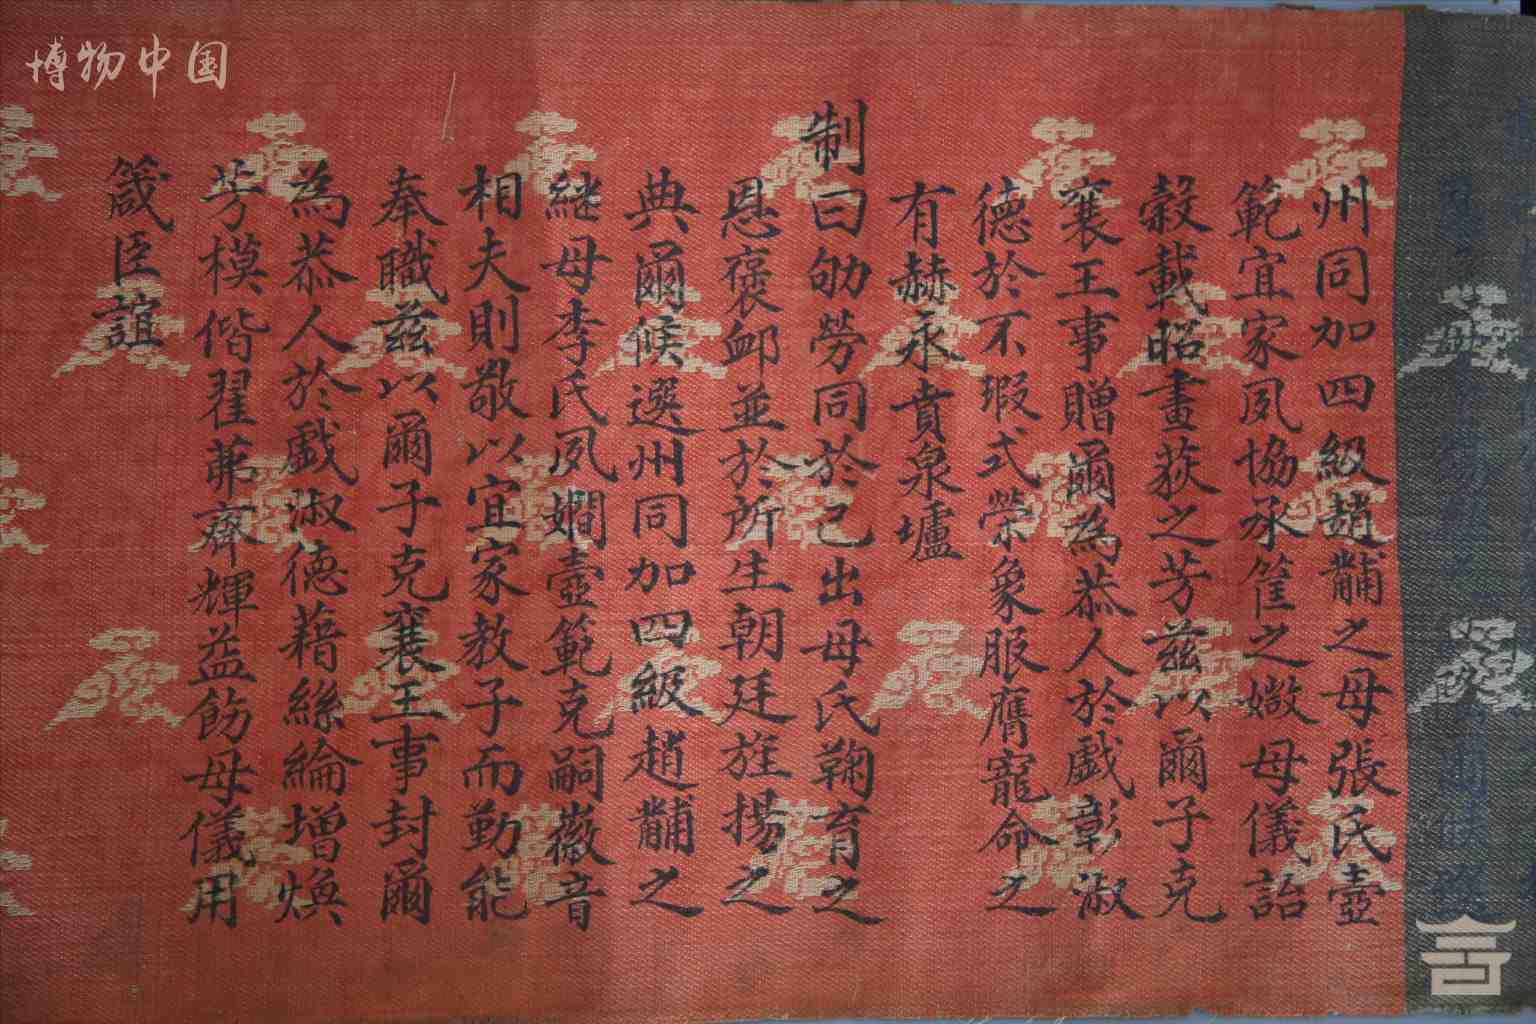 博物中国
州同加四級趙黼之母張氏壼
範宜家夙協承筐之媺母儀詒
穀載昭畫荻之芳茲以爾子克
襄王事贈爾為恭人於戲彰淑
德於不瑕式榮象服膺寵命之
有赫永賁泉壚
制曰劬勞同於己出母氏鞠育之
恩褒卹並於所生朝廷旌揚之
典爾候選州同加四級趙黼之
繼母李氏夙嫺壼範克嗣徽音
相夫則敬以宜家教子而勤能
奉職茲以爾子克襄王事封爾
為恭人於戲淑德藉絲綸增煥
芳模偕翟茀齊輝益飭母儀用
箴臣誼